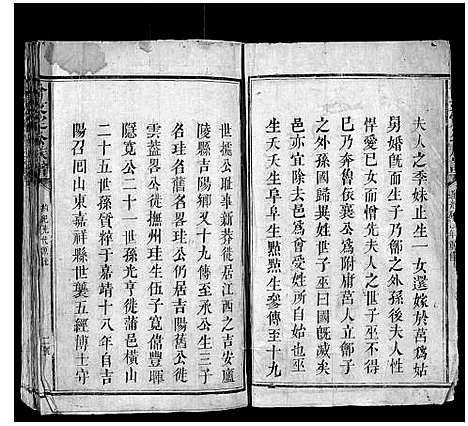 夫人之季妹止生一女還嫁於莒爲姑
舅婚旣而生子乃鄫之外孫後夫人性
悍愛已女而憎先夫人之世子巫不得
已乃奔魯依襄公爲附庸莒人立鄫子
之外孫國歸異姓世子巫曰國旣滅矣
邑亦宜除去邑爲曾受姓所自始也巫
生夭夭生阜阜生點點生參傳至十九
世據公恥事新莽徙居江西之吉安廬
陵縣吉陽鄉又十九傳至丞公生三子
名珪名舊名畧珪公仍居吉陽舊公徙
雲蓋畧公徙撫州珪生伍子寬儒豐畢
隱寬公二十一世孫光亨徙蒲邑橫山
二十五世孫質粹于嘉靖十八年自吉
陽召囘山東嘉祥縣世襲五經博士守